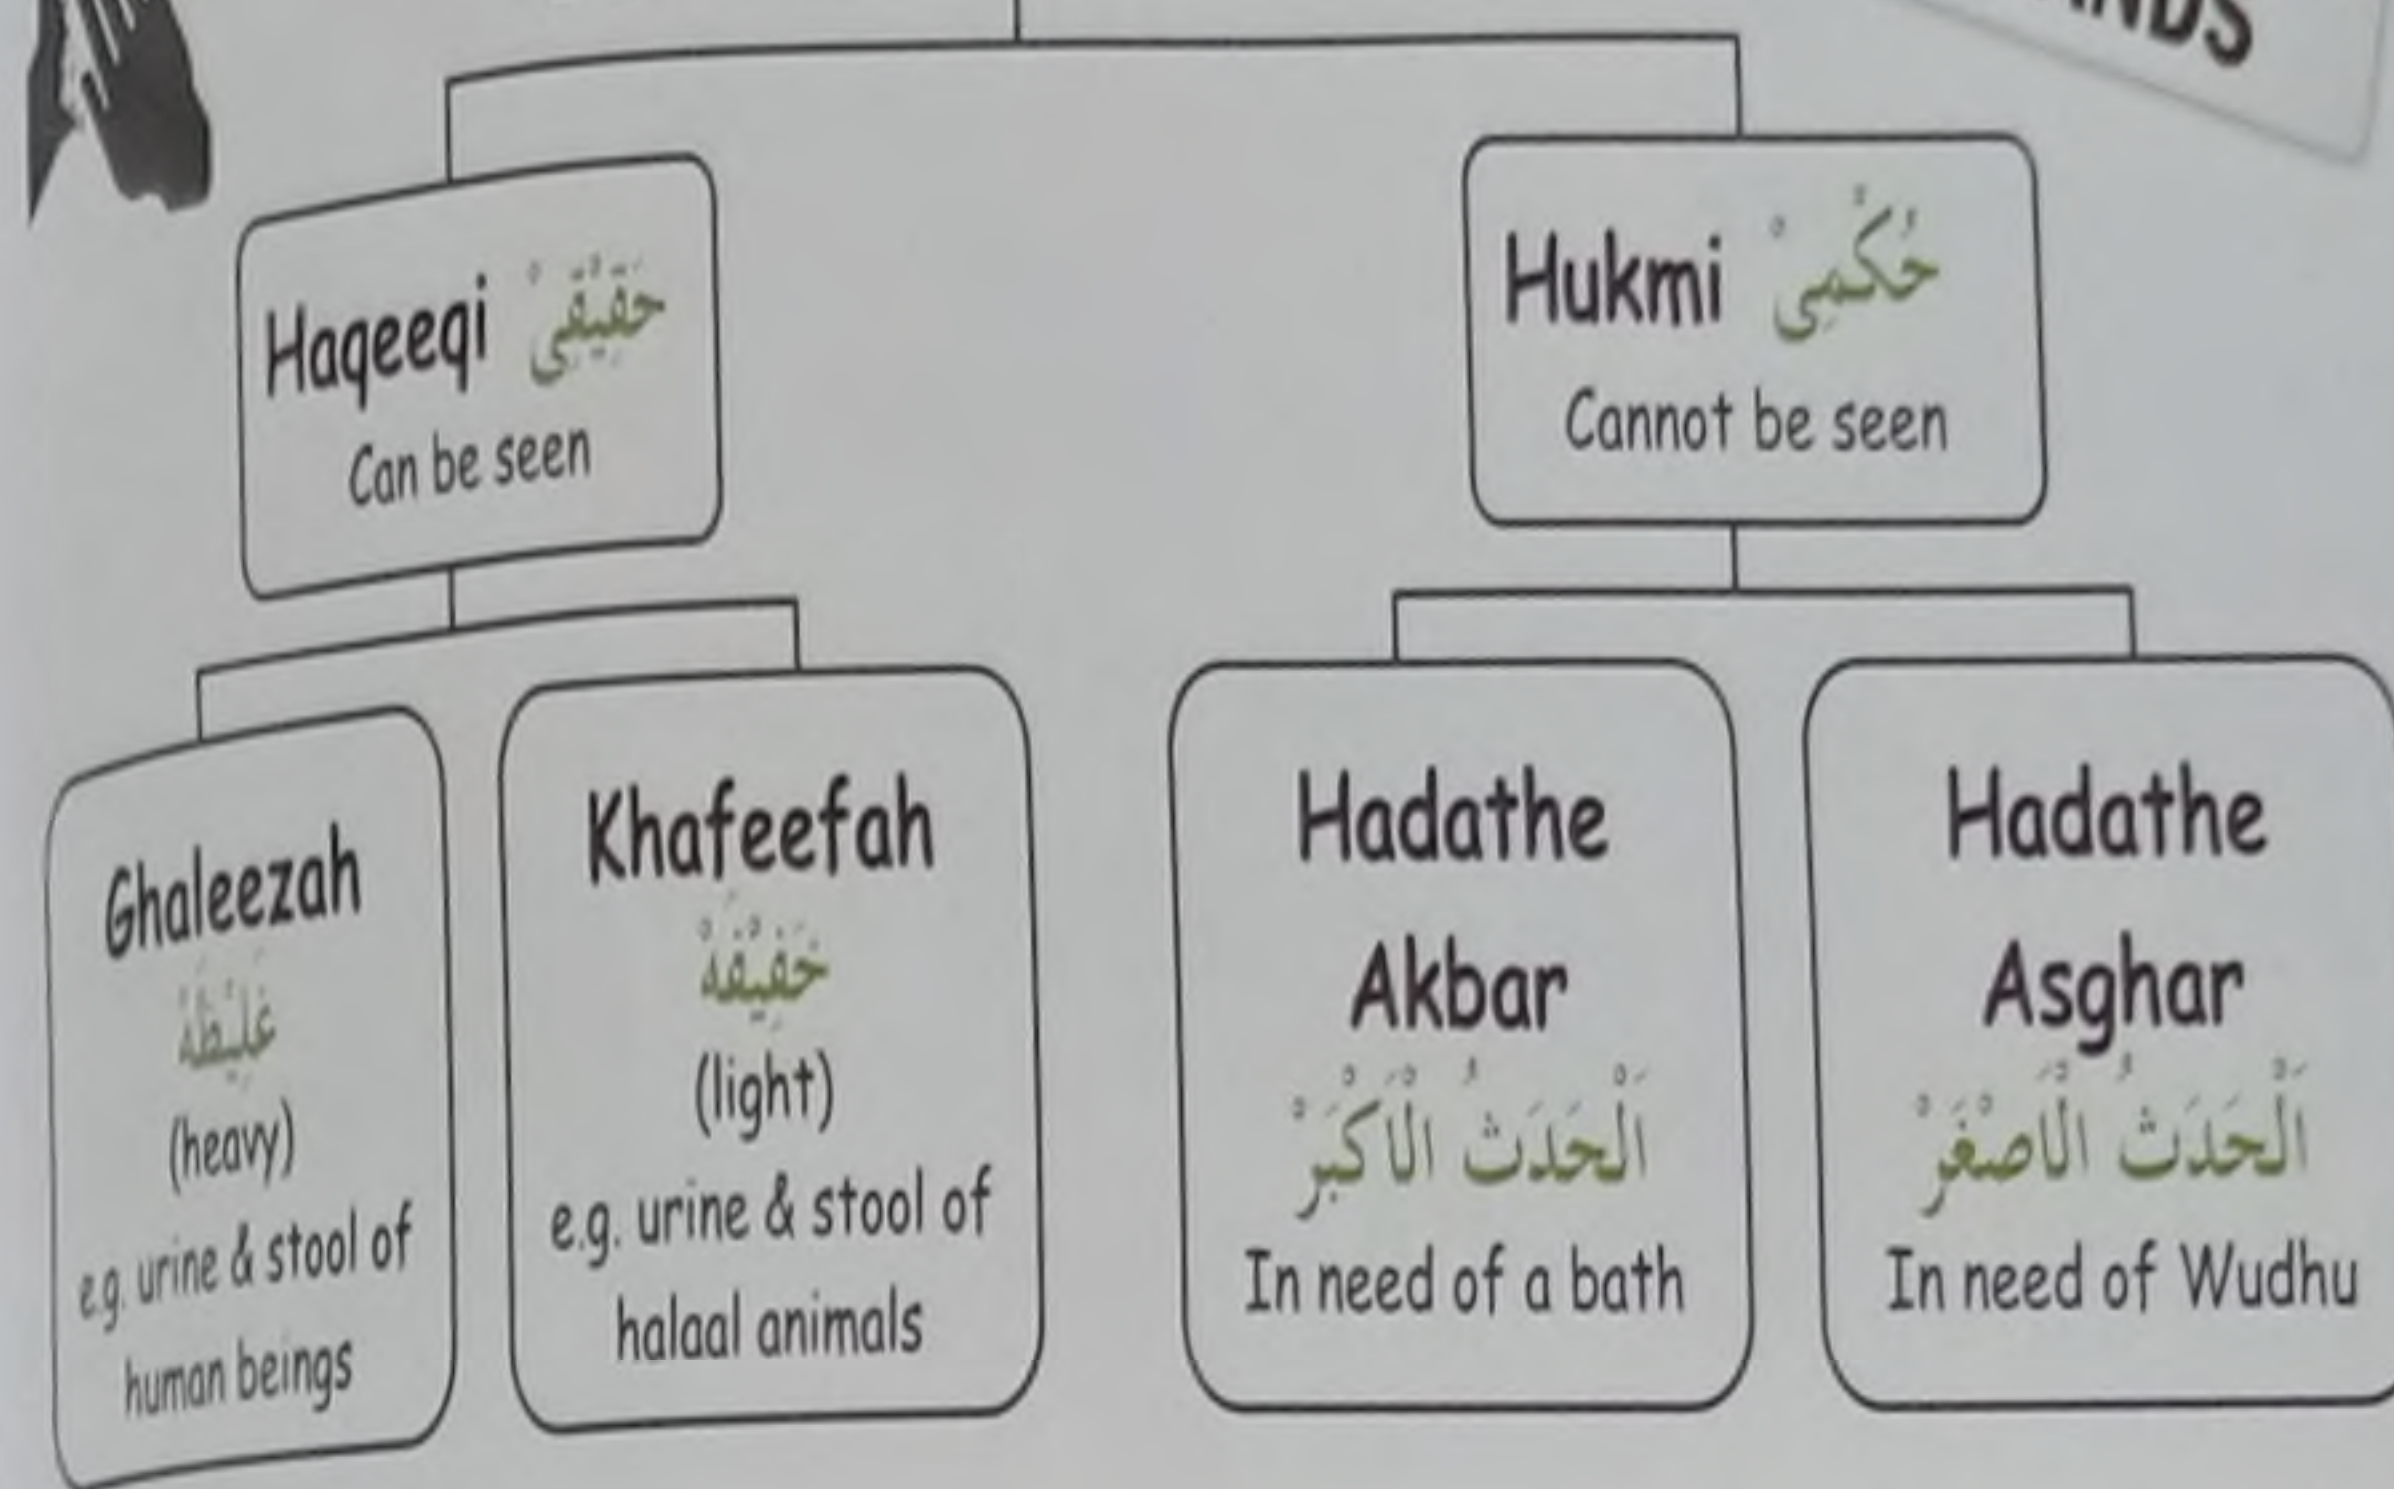 Haqeeqi حَقِيْقِيْ
Can be seen
Hukmi حُكْمِيْ
Cannot be seen
Ghaleezah
غَلِيْظَةْ
(heavy)
e.g. urine & stool of
human beings
Khafeefah
خَفِيْفَةْ
(light)
e.g. urine & stool of
halaal animals
Hadathe
Akbar
اَلْحَدَثُ الْاَكْبَرْ
In need of a bath
Hadathe
Asghar
اَلْحَدَثُ الْاَصْغَرْ
In need of Wudhu